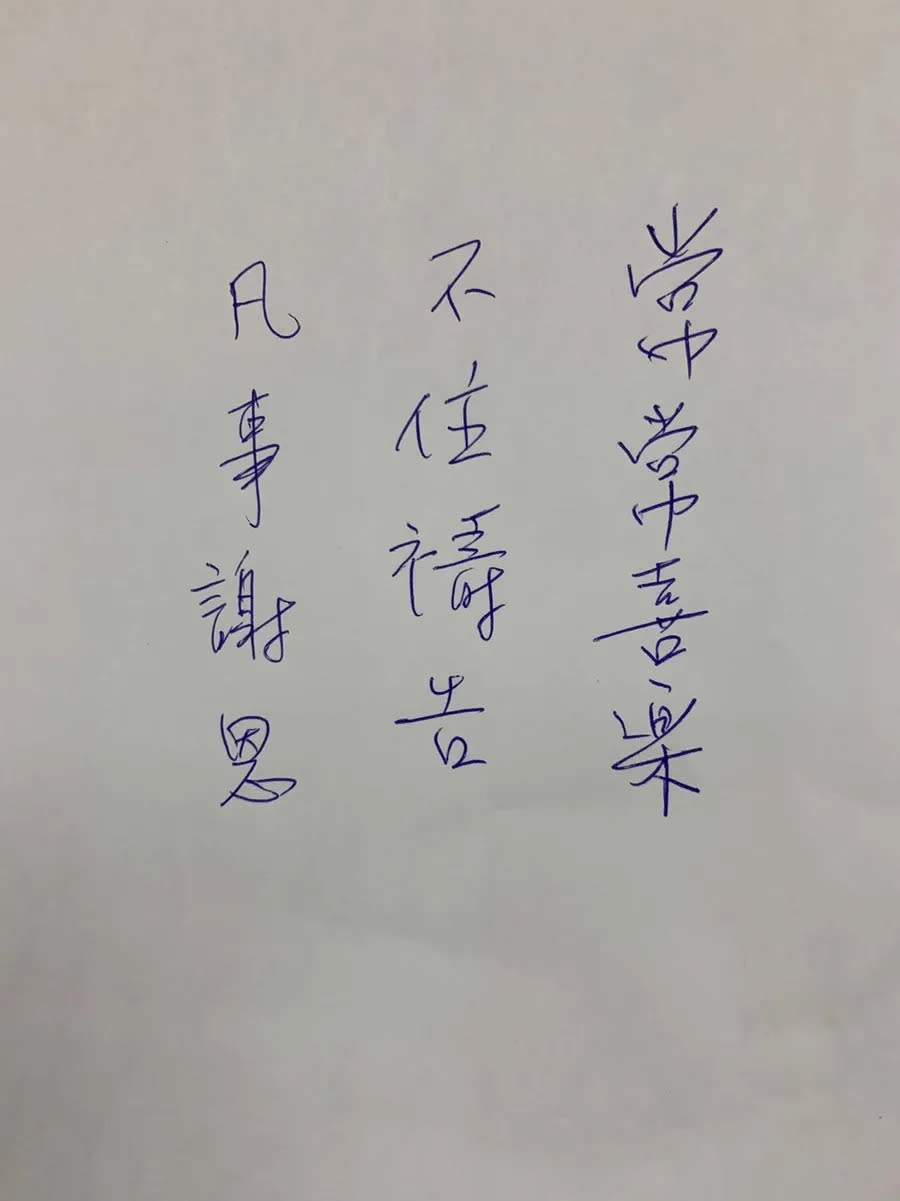 常常喜樂
不住禱告
凡事謝恩